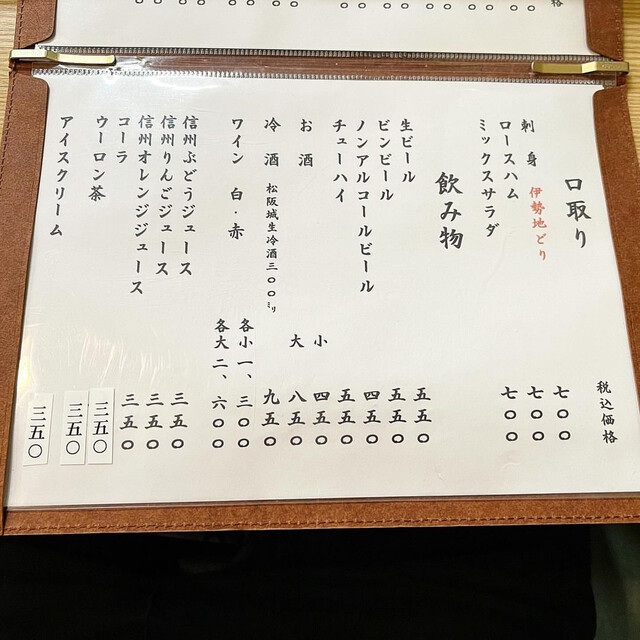 税込価格
口取り
刺身 伊勢地どり 七〇〇
ロースハム 七〇〇
ミックスサラダ 七〇〇
飲み物
生ビール 五五〇
ビンビール 五五〇
ノンアルコールビール 四五〇
チューハイ 五五〇
お酒 小 四五〇
大 八五〇
冷酒 松阪城生冷酒三〇〇㍉ 九五〇
ワイン 白・赤 各小一、三〇〇
各大二、六〇〇
信州ぶどうジュース 三五〇
信州りんごジュース 三五〇
信州オレンジジュース 三五〇
コーラ 三五〇
ウーロン茶 三五〇
アイスクリーム 三五〇